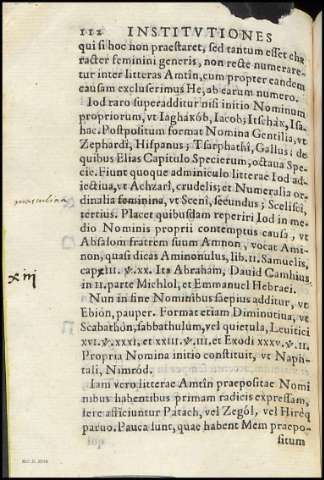 112 INSTITVTIONES
qui si hoc non praestaret, sed tantum esset cha
racter feminini generis, non recte numerare-
tur inter litteras Amtîn, cum propter eandem
causam excluserimus He, ab earum numero.
Iod raro superadditur nisi initio Nominum
propriorum, vt Iaghákób, Iacob; Itschák, Isa-
hac. Postpositum format Nomina Gentilia, vt
Zephardî, Hispanus; Tsarphathî, Gallus; de
quibus Elias Capitulo Specierum, octaua Spe-
cie. Fiunt quoque adminiculo litterae Iod ad-
iectiua, vt Achzarî, crudelis; et Numeralia or-
masculina
dinalia feminina, vt Scenî, secundus; Scelisci,
tertius. Placet quibusdam reperiri Iod in me-
dio Nominis proprij contemptus causa, vt
Absalom fratrem suum Amnon, vocat Ami-
non, quasi dicas Aminonulus, lib. II. Samuelis,
cap. XIII. V. XX. Ita Abraham, Dauid Camhius
xiij
in II. parte Michlol, et Emmanuel Hebraei.
Nun in fine Nominibus saepius additur, vt
Ebión, pauper. Format etiam Diminutiua, vt
Scabathón, sabbathulum, vel quietula, Leuitici
XVI. V. XXXI, et XXIII. V. III, et Exodi XXXV. V. II.
Propria Nomina initio constituit, vt Naph-
tali, Nimród.
Iam vero litterae Amtîn praepositae Nomi
nibus habentibus primam radicis expressam,
fere afficiuntur Patach, vel Zegól, vel Hiréq
paruo. Pauca sunt, quae habent Mem praepo-
situm